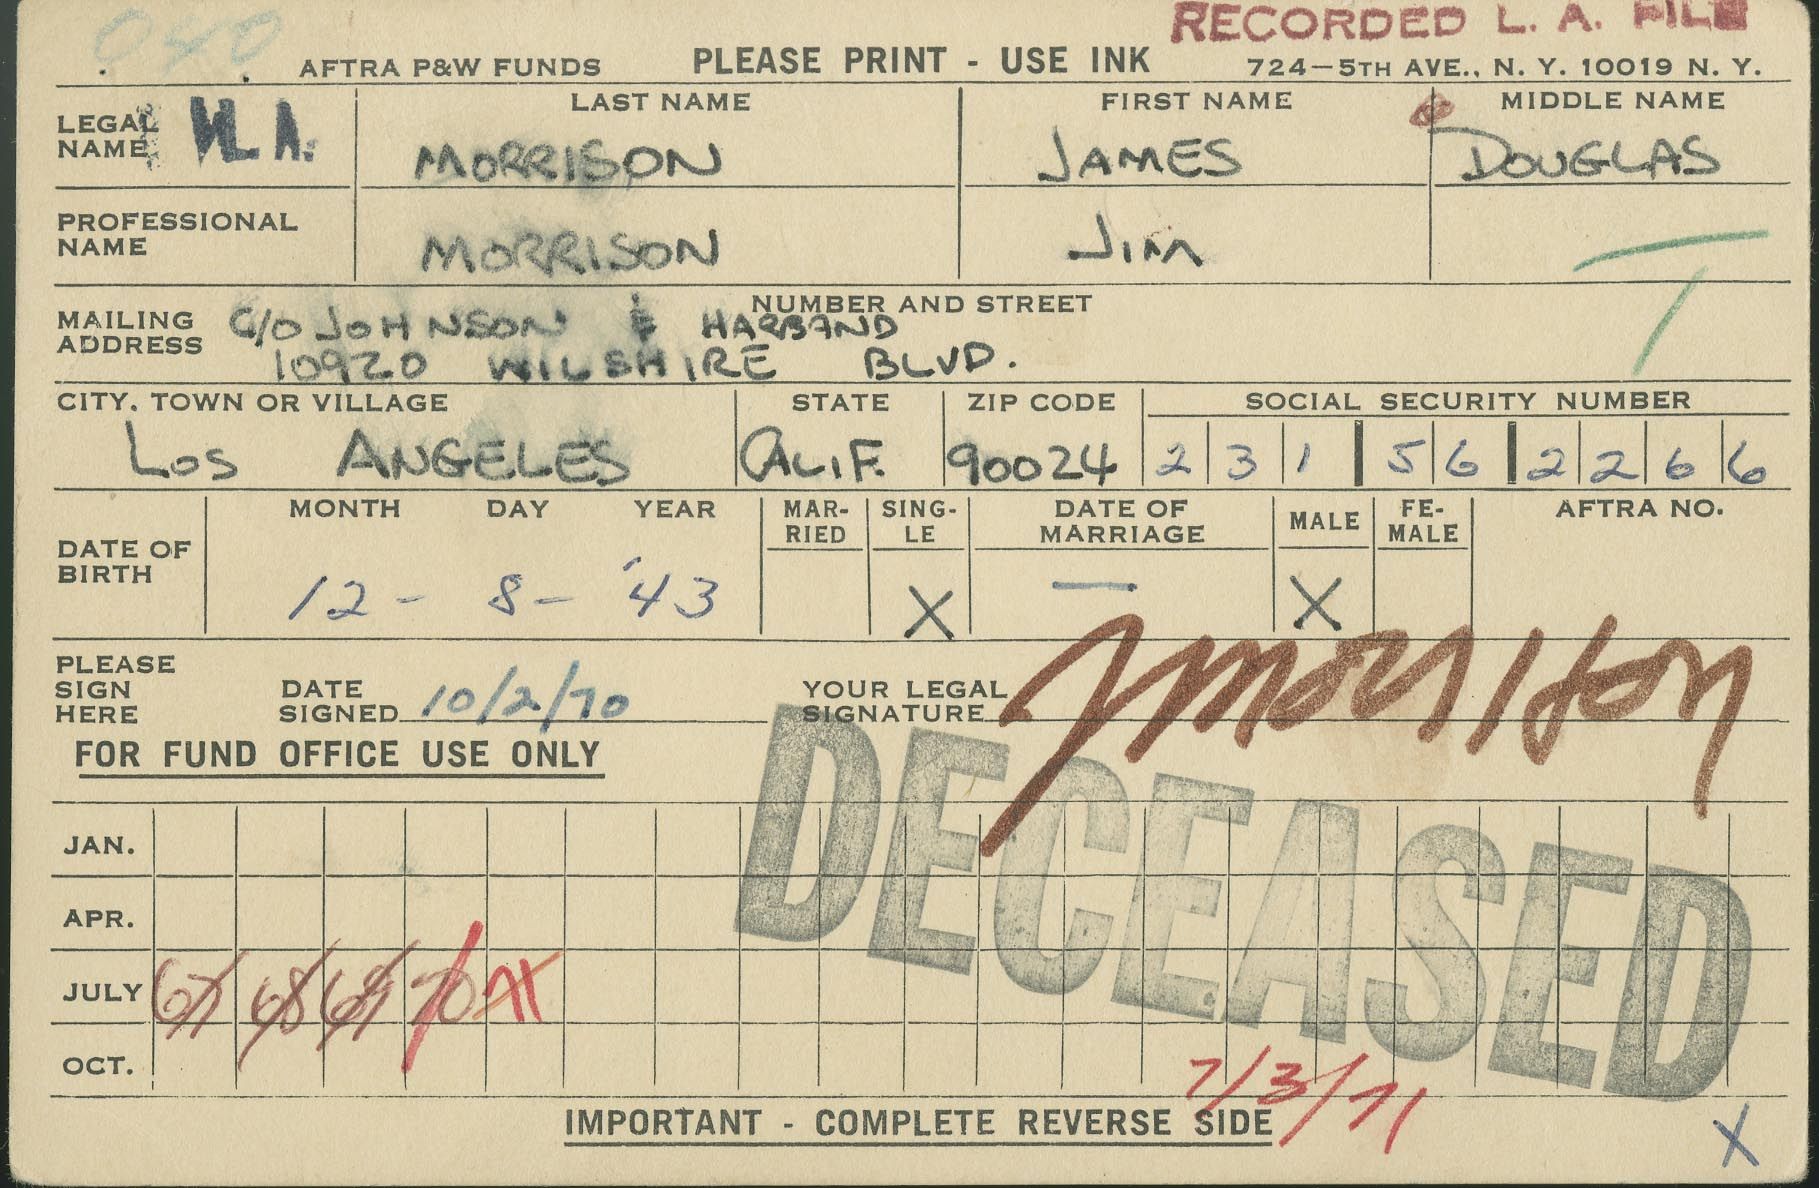 RECORDED L. A. FILE
AFTRA P&W FUNDS PLEASE PRINT - USE INK 724-5TH AVE., N. Y. 10019 N. Y.
LEGAL NAME LAST NAME FIRST NAME MIDDLE NAME
MORRISON JAMES DOUGLAS
PROFESSIONAL NAME MORRISON JIM
MAILING ADDRESS NUMBER AND STREET
C/O JOHNSON & HARBAND
10920 WILSHIRE BLVD.
CITY, TOWN OR VILLAGE STATE ZIP CODE SOCIAL SECURITY NUMBER
LOS ANGELES CALIF. 90024 231 56 2266
MONTH DAY YEAR MAR-RIED SING-LE DATE OF MARRIAGE MALE FE-MALE AFTRA NO.
DATE OF BIRTH 12 - 8 - '43 X — X
PLEASE SIGN HERE DATE SIGNED 10/2/70 YOUR LEGAL SIGNATURE JMorrison
FOR FUND OFFICE USE ONLY
DECEASED
JAN.
APR.
JULY 67 68 69 70 71
OCT.
7/3/71
IMPORTANT - COMPLETE REVERSE SIDE
X